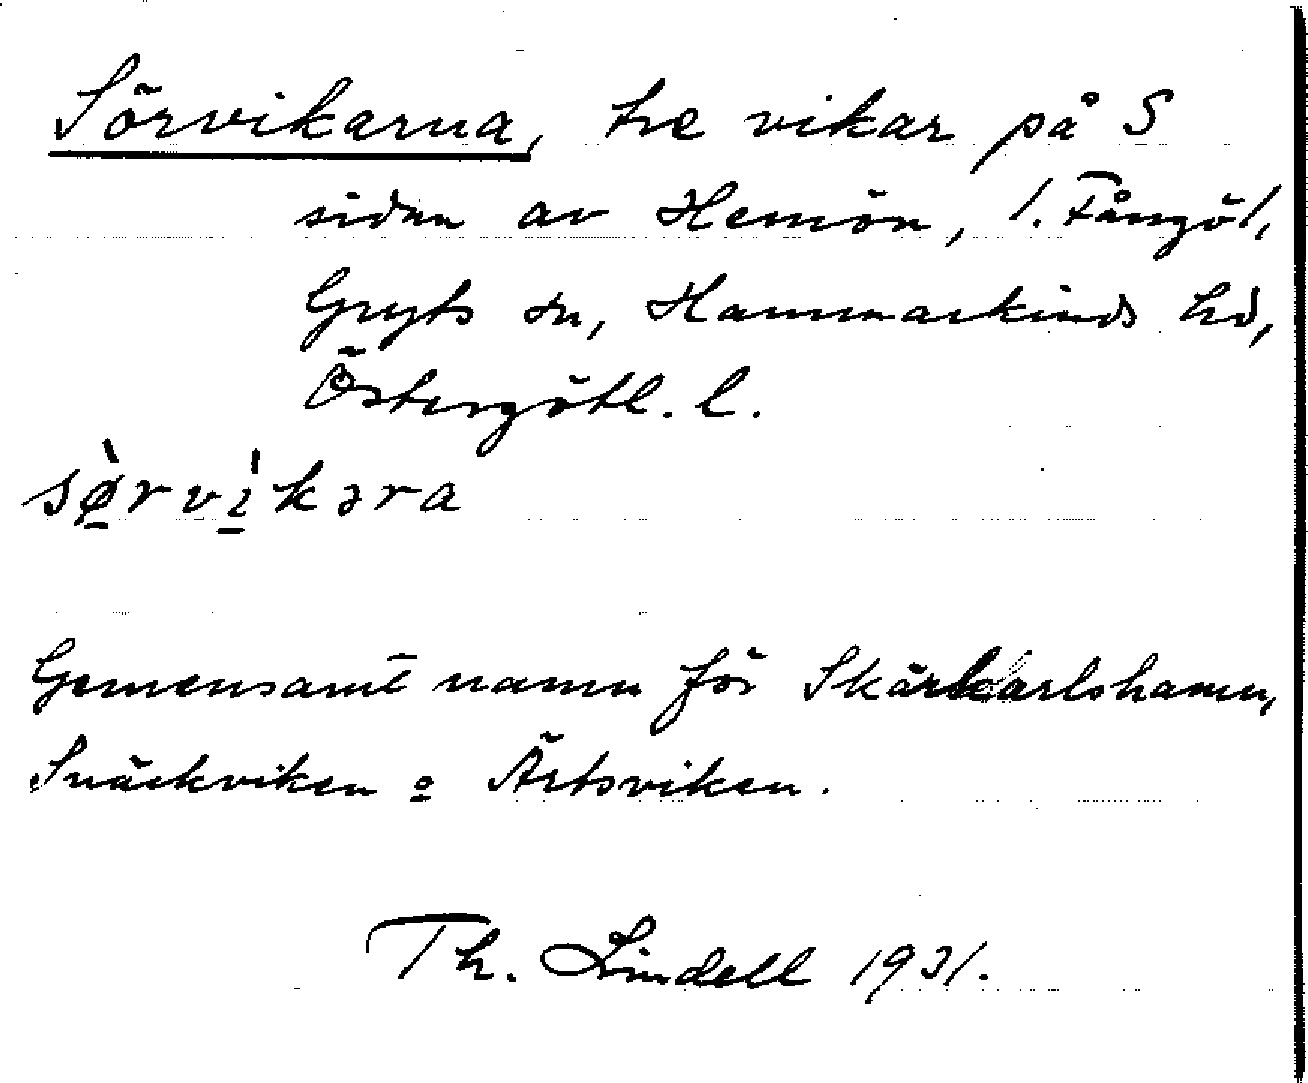 Sörvikarna, tre vikar på S
sidan av Hemön, /. Fångö/,
Gryts sn, Hammarkinds hd,
Östergötl. l.
sø̠̀rvì̠kəra
Gemensamt namn för Skärkarlshamn,
Snäckviken o Ärtsviken.
Th. Lindell 1931.